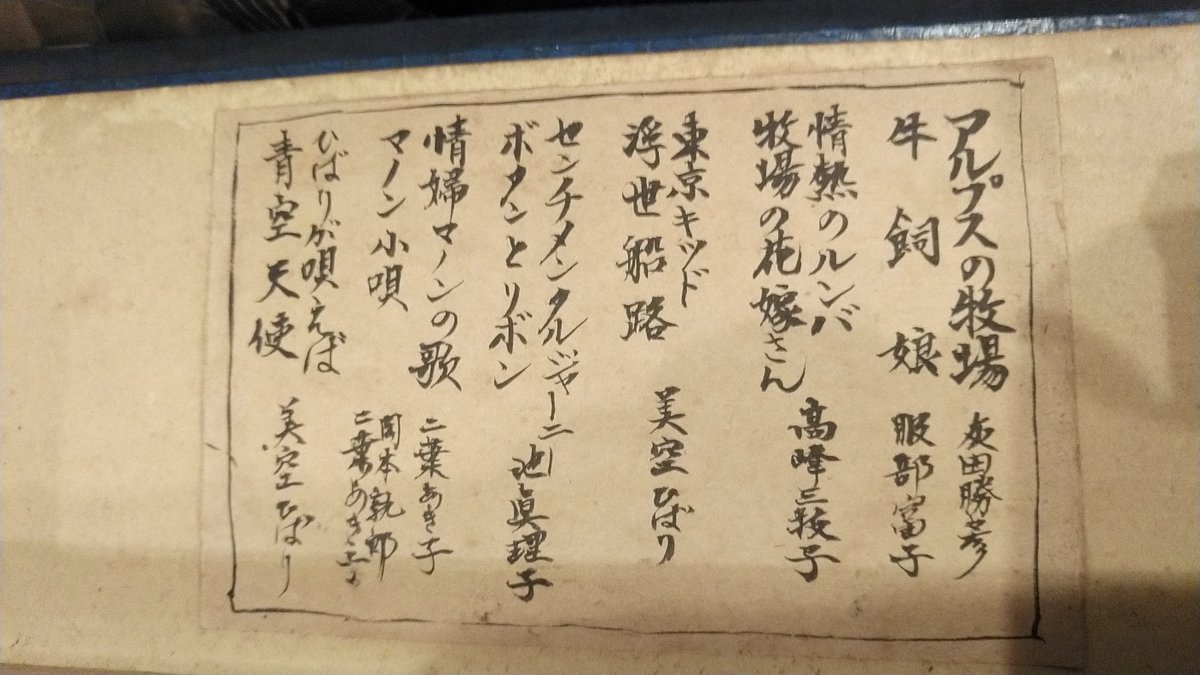 アルプスの牧場 灰田勝彦
牛飼娘 服部富子
情熱のルンバ
牧場の花嫁さん 高峰三枝子
東京キッド
浮世船路 美空ひばり
センチメンタルジャーニー
ボタンとリボン 池真理子
情婦マノンの歌 二葉あき子
マノン小唄 岡本敦郎 二葉あき子
ひばりが唄えば
青空天使 美空ひばり